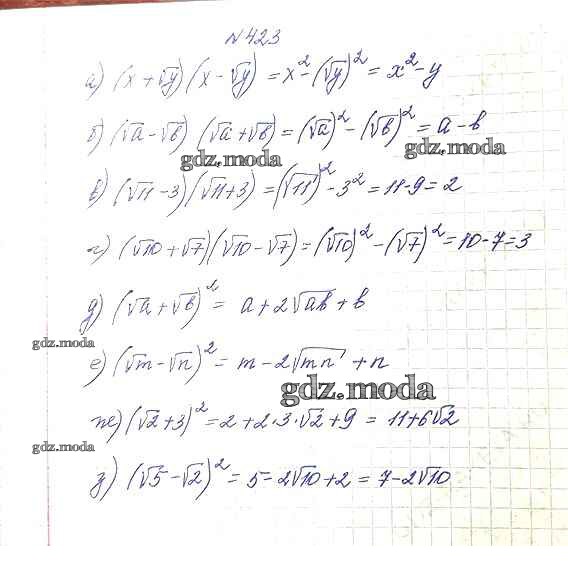 №423
а) (x + √y)(x - √y) = x² - (√y)² = x² - y
б) (√a - √b) (√a + √b) = (√a)² - (√b)² = a - b
gdz.moda
gdz.moda
в) (√11 - 3)(√11 + 3) = (√11)² - 3² = 11 - 9 = 2
г) (√10 + √7)(√10 - √7) = (√10)² - (√7)² = 10 - 7 = 3
д) (√a + √b)² = a + 2√ab + b
gdz.moda
е) (√m - √n)² = m - 2√mn + n
gdz.moda
ж) (√2 + 3)² = 2 + 2·3·√2 + 9 = 11 + 6√2
gdz.moda
з) (√5 - √2)² = 5 - 2√10 + 2 = 7 - 2√10